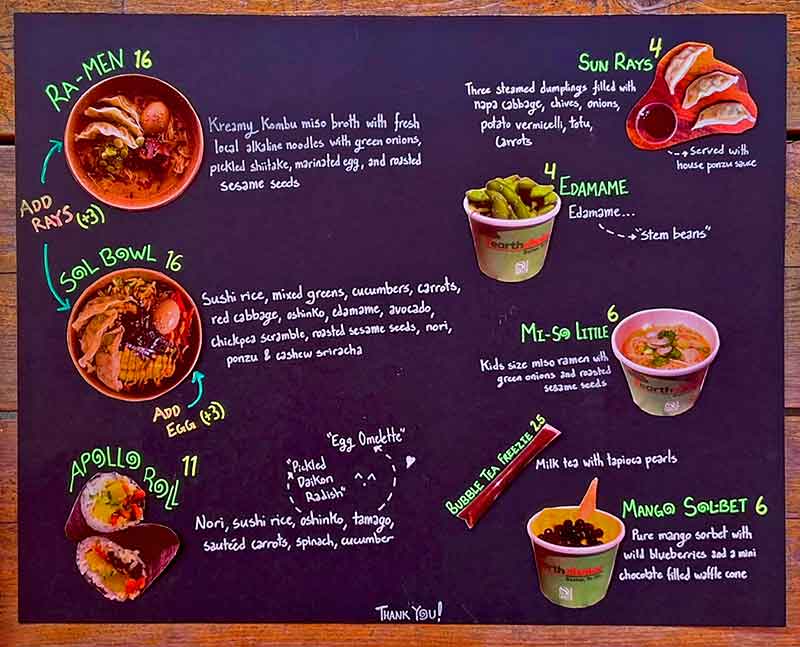 RA-MEN 16
Kreamy Kombu miso broth with fresh
local alkaline noodles with green onions,
pickled shiitake, marinated egg, and roasted
sesame seeds
ADD
RAYS (+3)
SOL BOWL 16
Sushi rice, mixed greens, cucumbers, carrots,
red cabbage, oshinko, edamame, avocado,
chickpea scramble, roasted sesame seeds, nori,
ponzu & cashew sriracha
ADD
EGG (+3)
APOLLO ROLL 11
"Egg Omelette"
"Pickled
Daikon
Radish"
Nori, sushi rice, oshinko, tamago,
sautéed carrots, spinach, cucumber
SUN RAYS 4
Three steamed dumplings filled with
napa cabbage, chives, onions,
potato vermicelli, tofu,
carrots
served with
house ponzu sauce
4 EDAMAME
Edamame...
"stem beans"
earth
MI-SO LITTLE 6
Kids size miso ramen with
green onions and roasted
sesame seeds
earth
BUBBLE TEA FREEZIE 2.5
Milk tea with tapioca pearls
MANGO SOL-BET 6
Pure mango sorbet with
wild blueberries and a mini
chocolate filled waffle cone
earth
THANK YOU!